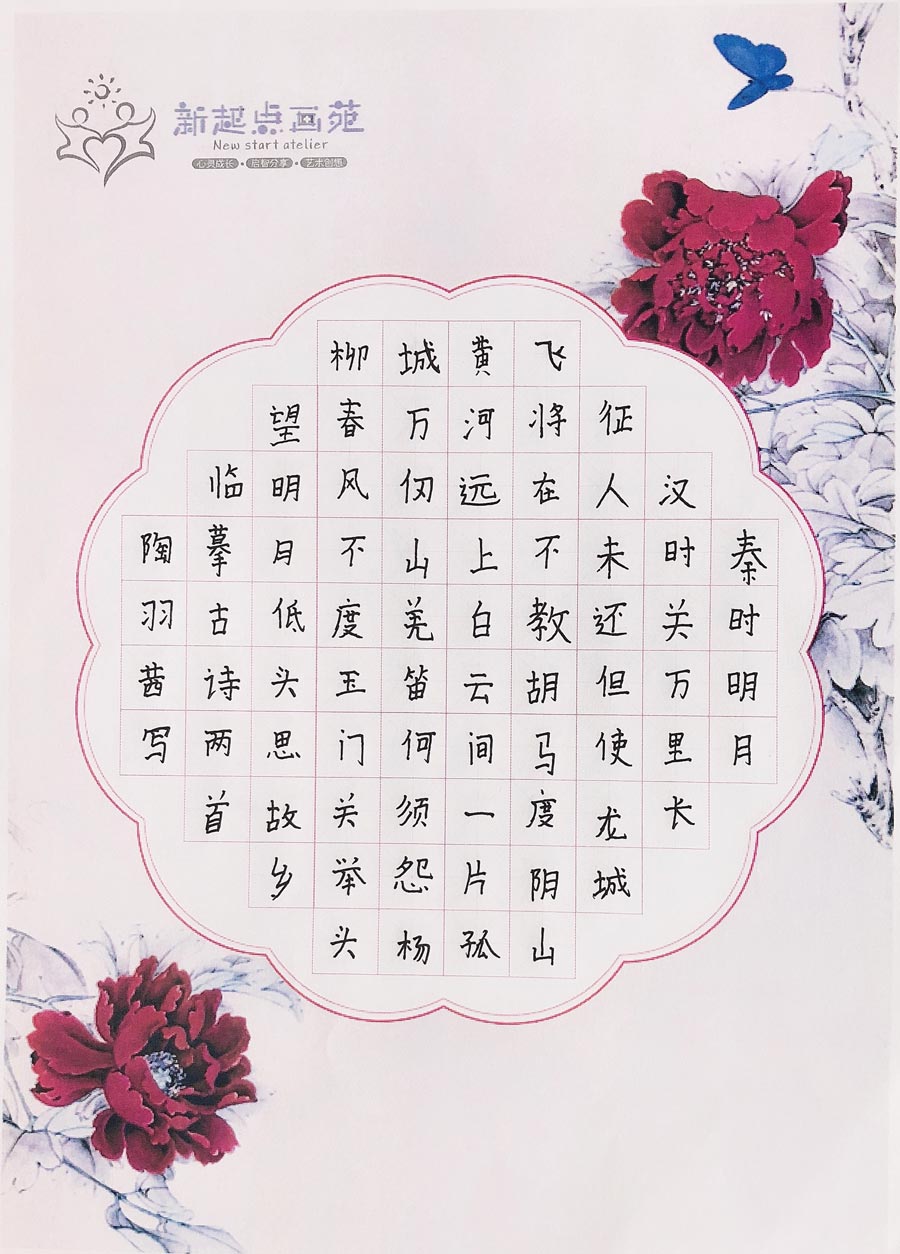 新起点画苑
New start atelier
心灵成长·启智分享·艺术创想
秦时明月
汉时关万里长
征人未还但使龙城
飞将在不教胡马度阴山
黄河远上白云间一片孤
城万仞山羌笛何须怨杨
柳春风不度玉门关举头
望明月低头思故乡
临摹古诗两首
陶羽茜写